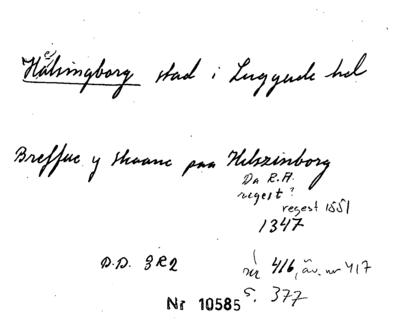 Hälsingborg stad i Luggude hd
Breffue y Skaane paa Helszinborg
Da R.A.
regest?
regest 1551
1347
D.D. 3R2
nr 416, äv. nr 417
s. 377
Nr 10585